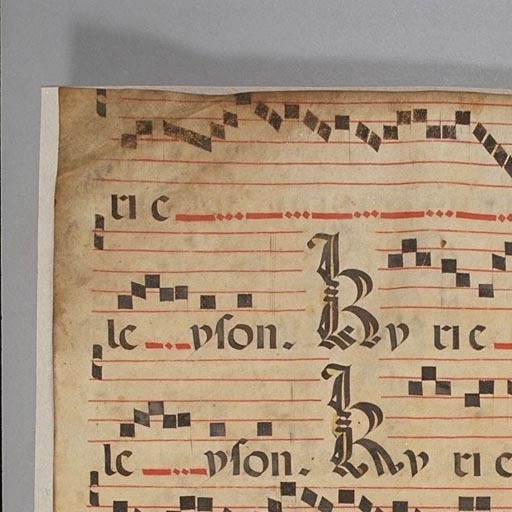 ric
le yson. Ky rie
le yson. Ky rie